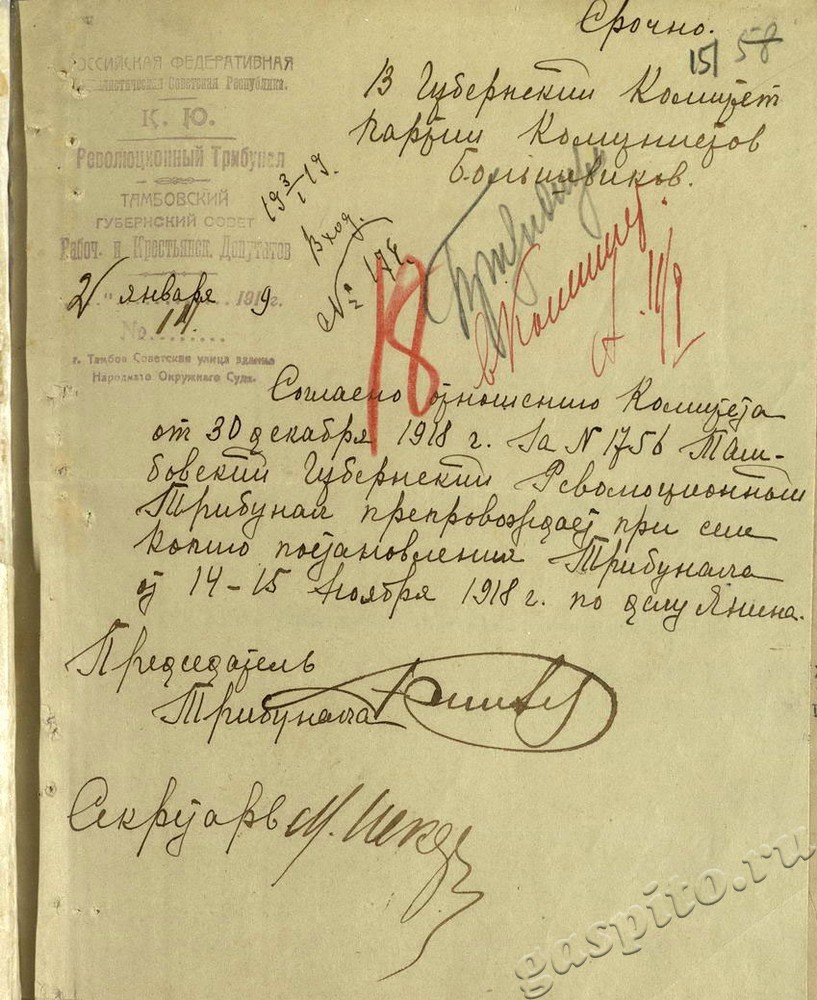 Срочно.
15 58
РОССИЙСКАЯ ФЕДЕРАТИВНАЯ
Социалистическая Советская Республика.
К. Ю.
Революционный Трибунал
ТАМБОВСКИЙ
ГУБЕРНСКИЙ СОВЕТ
Рабоч. и Крестьянск. Депутатов
2 января 1919г.
№ 14.
г. Тамбов Советская улица здание
Народнаго Окружнаго Суда.
В Губернский Комитет
партии Комунистов
Большевиков.
19 3/I 19.
Вход.
№ 178.
18
в Комиссет.
Согласно отношению Комитета
от 30 декабря 1918 г. за N 1756 Там-
бовский Губернский Революционный
Трибунал препровождает при сем
копию постановления Трибунала
от 14-15 Ноября 1918 г. по делу Янина.
Председатель
Трибунала
Секретарь
gaspito.ru